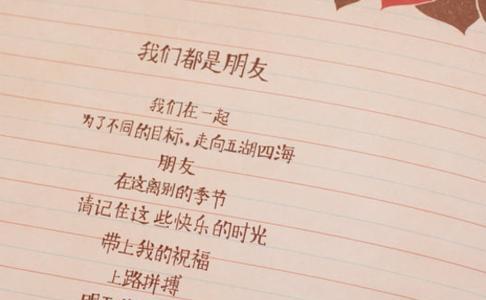 我们都是朋友
我们在一起
为了不同的目标。走向五湖四海
朋友
在这离别的季节
请记住这些快乐的时光
带上我的祝福
上路拼搏